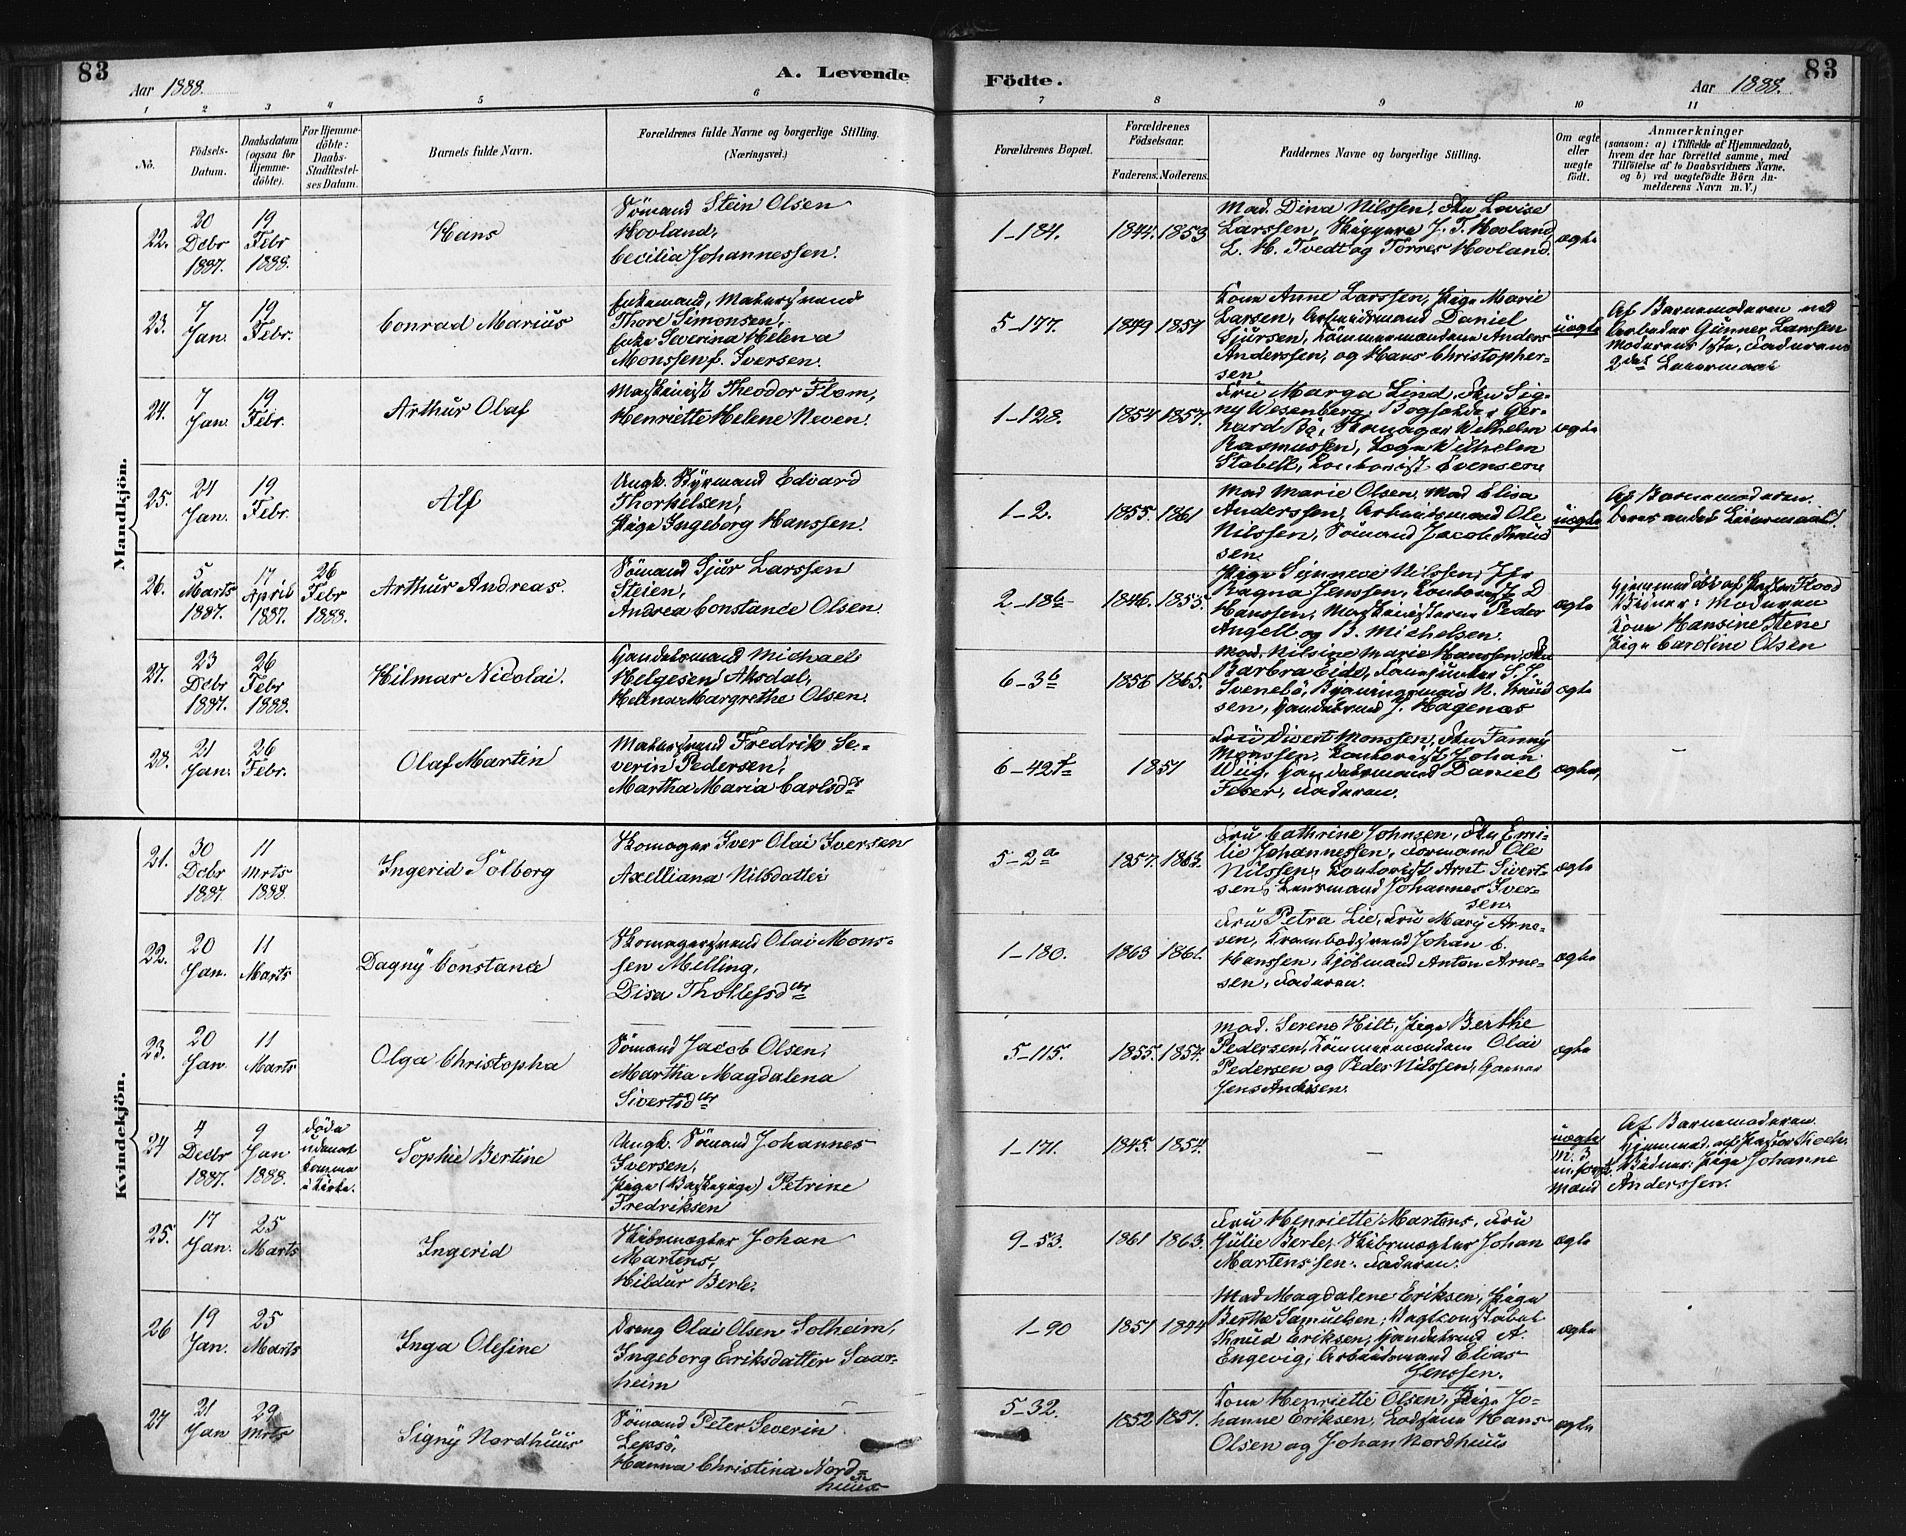 83
Aar 1888.
A. Levende
Fødte.
Aar 1888.
83
1 2 3 4 5 6 7 8 9 10 11
No.
Fødsels-Datum.
Daabsdatum (ogsaa for Hjemme-døbte).
For Hjemme-døbte: Daabs-Stadfæstel-ses Datum.
Barnets fulde Navn.
Forældrenes fulde Navne og borgerlige Stilling. (Næringsvei.)
Forældrenes Bopæl.
Forældrenes Fødselsaar.
Faderens. Moderens.
Faddernes Navne og borgerlige Stilling.
Om ægte eller uægte født.
Anmærkninger
(saasom: a) i Tilfælde af Hjemmedaab, hvem der har forrettet samme, med Tilføielse af to Daabsvidners Navne. og b) ved uægtefødte Børn An-melderens Navn m. V.)
Mandkjøn.
22.
20 Debr 1887.
19 Febr 1888.
Hans
Sömand Stein Olsen
Hovland,
Cecilia Johannessen.
1-184.
1844. 1853
Mad. Dina Nilssen, Fru Lovise
Larssen, Skippere J. T. Hovland,
L. H. Tvedt og Torres Hovland.
ægte
23.
7 Jan.
19 Febr.
Conrad Marius
Thore Simonsen,
Enke Severina Helena
Monssen f. Iversen.
5-177.
1849 1851
Kone Anne Larssen, Pige Marie
Larsen, Arbeidsmand Daniel
Sjursen, Tömmermændene Anders
Anderssen, og Hans Christopher-
sen
uægte
Af Barnemoderen ved
Arbeider Gunner Larssen
Moderens 1ste, Faderens
2det Leiermaal
24.
7 Jan.
19 Febr.
Arthur Olaf
Maskinist Theodor Flom,
Henriette Helene Neven.
1-128.
1854 1857.
Fru Marga Lind, Fru Sig-
ny Wesenberg, Bogholder Ger-
hard Bö, Skomager Wilhelm
Rasmussen, Wilhelm
Stabell, Evensen
ægte
25.
24 Jan.
19 Febr.
Alf
Ungk. Styrmand Edvard
Thorkelsen,
Pige Ingeborg Hanssen.
1-2.
1855. 1861
Mad Marie Olsen, Mad Elisa
Anderssen, Arbeidsmand Ole
Nilssen, Sömand Jacob Knud
sen.
uægte
Af Barnemoderen.
Deres andet Leiermaal.
26.
5 Marts 1887.
17 April 1887.
26 Febr 1888.
Arthur Andreas.
Sömand Sjur Larssen
Steien,
Andrea Constance Olsen.
2-18b
1846. 1855.
Pige Synneve Nilssen,
Ragna Jenssen, Kontorist D
Hanssen, Maskinisterne Peder
Angell og B. Michelsen.
ægte
Hjemmedöbt af Pastor Flood
Vidner: Moderen
Kone Hansine Stene
Pige Caroline Olsen
27.
23 Debr 1887.
26 Febr 1888.
Hilmar Nicolai.
Handelsmand Michael
Helgesen Aksdal,
Helena Margrethe Olsen.
6-3b
1856 1865.
Mad. Nilsine Marie Hanssen, Fru
Barbra Eide, S. J.
Svenebö, N. Knud
sen, J. Hagenæs
ægte
28.
21 Jan.
26 Febr.
Olaf Martin
Malersvend Fredrik Se-
verin Pedersen,
Martha Maria Carlsdtr
6-42f
1851
Fru Sivert Monssen, Fru Fanny
Monssen, Kontorist Johan
Wiig, Handelsmand Daniel
Feser, Faderen.
ægte,
Kvindekjøn.
21.
30 Debr 1887.
11 Mrts 1888.
Ingerid Solborg
Skomager Iver Olai Iversen
Axelliana Nilsdatter
5-2a
1857. 1863.
Fru Cathrine Johnsen, Fru Emi-
lie Johannessen, Formand Ole
Nilssen, Kontorist Arnt Sivert-
sen, Johannes Iver-
sen.
ægte
22.
20 Jan.
11 Marts
Dagny Constance
Skomagersvend Olai Mons-
sen Melling,
Disa Thollefsdtr
1-180.
1863 1861.
Fru Petra Lie, Fru Mary Arne-
sen, Krambodsvend Johan C.
Hanssen, Kjöbmand Anton Arne-
sen, Faderen.
ægte
23.
20 Jan.
11 Marts
Olga Christopha
Sömand Jacob Olsen,
Martha Magdalena
Sivertsdtr
5-115.
1855. 1854.
Mad. Serene Hilt, Pige Berthe
Pedersen, Tömmermændene Olai
Pedersen og Peder Nilssen,
Jens Andersen.
ægte
24
4 Decbr 1887.
9 Jan 1888.
Döde
udenat
komme
i Kirke.
Sophie Bertine
Ungk. Sömand Johannes
Iversen,
Pige (Vaskepige) Petrine
Fredriksen
1-171.
1845. 1854.
—
uægte
M. 3
Mand
Af Barnemoderen.
Hjemmed. af Pastor Koch.
Vidner: Pige Johanne
Anderssen.
25.
17 Jan.
25 Marts
Ingerid
Skibsmægler Johan
Martens,
Hildur Berle.
9-53.
1861 1863.
Fru Henriette Martens, Fru
Julie Berle, Skibsmægler Johan
Martenssen. Faderen.
ægte
26
19 Jan.
25 Marts
Inga Olesine
Dreng Olai Olsen Solheim,
Ingeborg Eriksdatter Saar-
heim
1-90
1851 1844
Mad Magdalene Eriksen, Pige
Berthe Samuelsen, Vagtkonstabel
Knud Eriksen, A.
Engevig, Arbeidsmand Elias
Jenssen.
ægte
27
21 Jan
29 Mrts
Signy Nordhuus
Sömand Peter Severin
Lepsö,
Hanna Christina Nord=
huus
5-32.
1852 1851.
Kone Henriette Olsen, Pige Jo-
hanne Eriksen, Lodserne Hans
Olsen og Johan Nordhuus
ægte